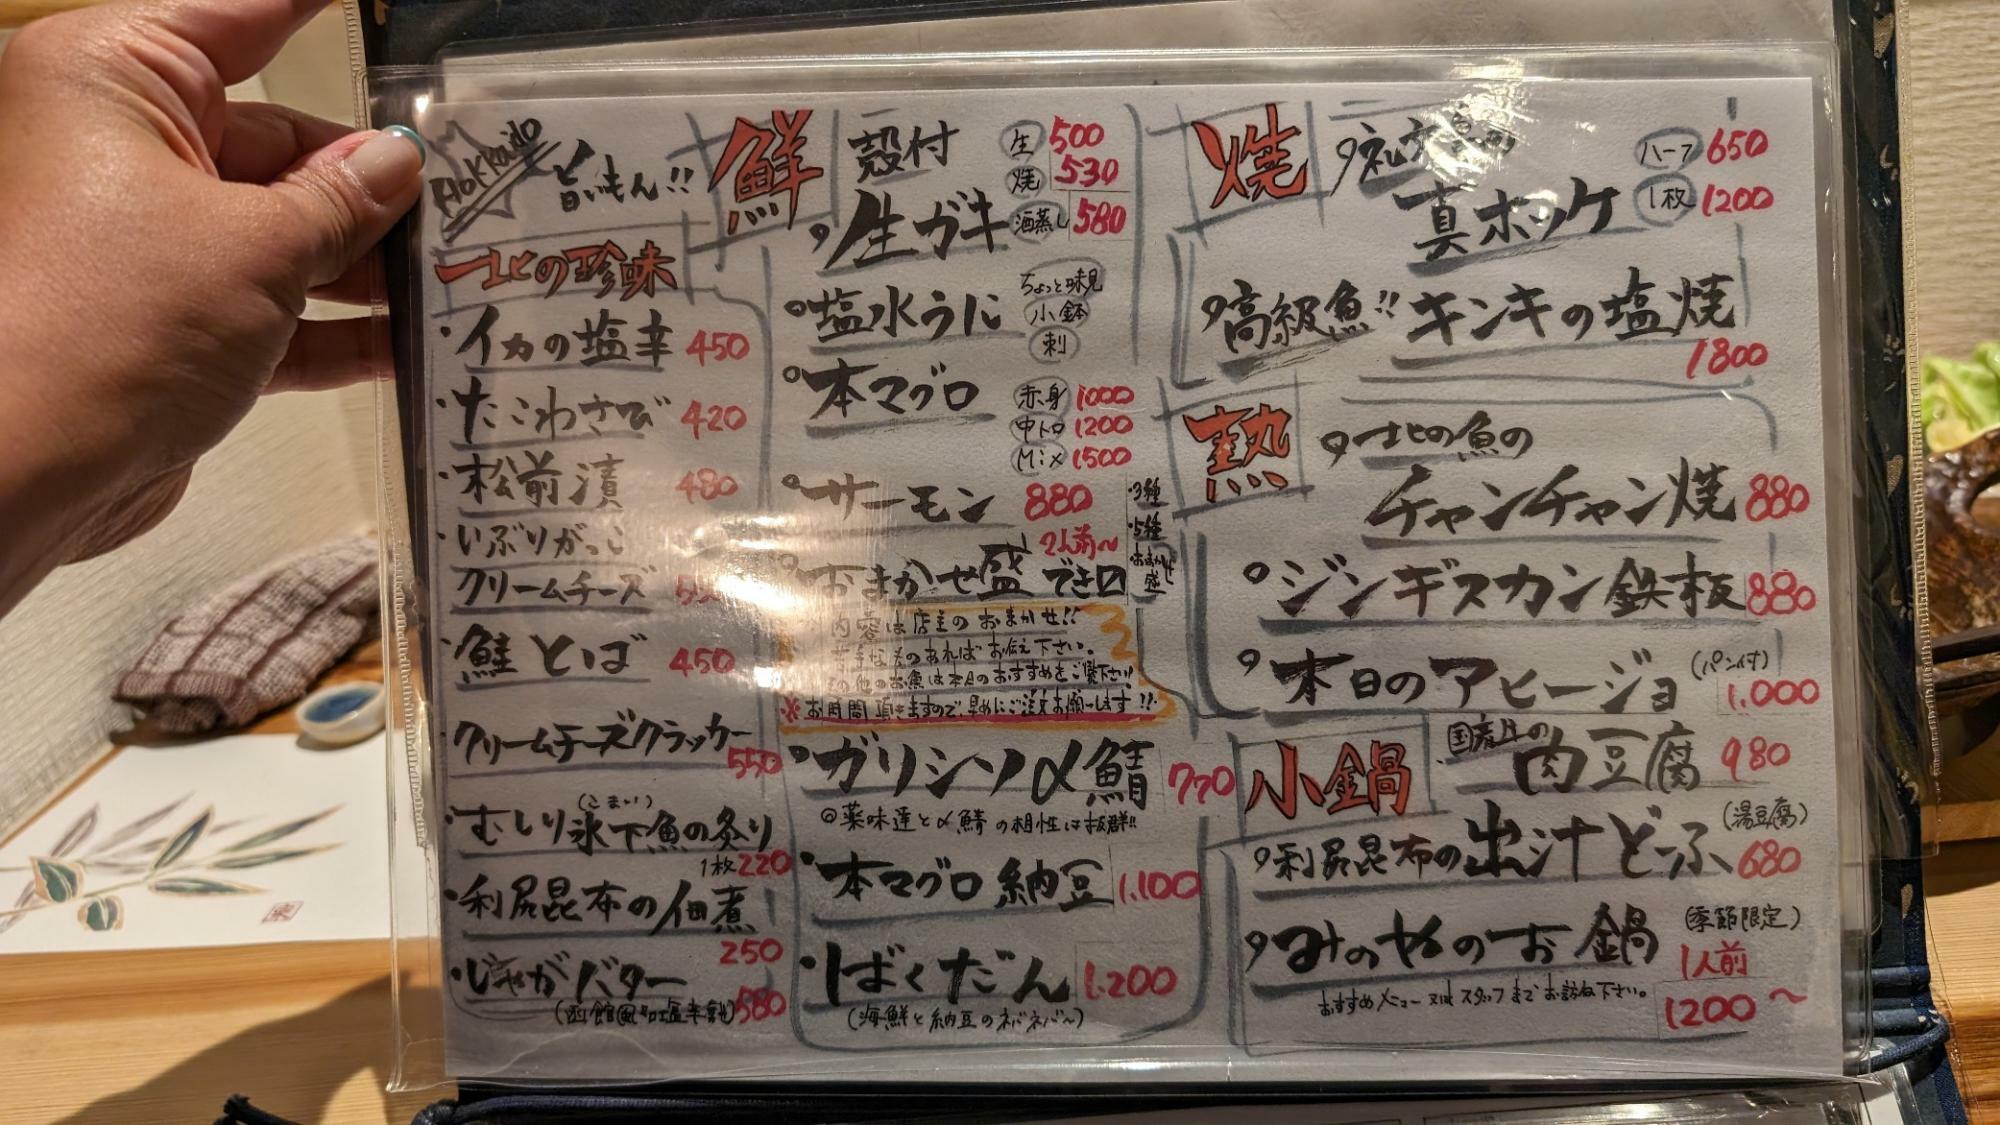 Hokkaido
旨いもん!!
北の珍味
・イカの塩辛 450
・たこわさび 420
・松前漬 480
・いぶりがっこ
クリームチーズ
・鮭とば 450
・クリームチーズクラッカー
550
(こまい)
・むしり氷下魚の炙り
1枚220
・利尻昆布の佃煮
250
・じゃがバター
580
鮮
殻付
生ガキ
生 500
焼 530
酒蒸し 580
塩水うに
ちょっと味見
小鉢
刺
本マグロ
赤身 1000
中トロ 1200
Mix 1500
サーモン 880
2人前~
おまかせ盛 でき〼
・3種
・5種
おまかせ盛
内容は店主のおまかせ!!
苦手なものあればお伝え下さい。
その他のお魚は本日のおすすめをご覧下さい!!
※お時間頂きますので、早めにご注文お願いします!!
ガリシソ〆鯖 770
◎薬味達と〆鯖の相性は抜群!!
・本マグロ納豆 1,100
・ばくだん 1,200
(海鮮と納豆のネバネバ~)
焼
真ホッケ
ハーフ 650
1枚 1200
高級魚!! キンキの塩焼
1800
熱
北の魚の
チャンチャン焼 880
ジンギスカン鉄板 880
本日のアヒージョ (パン付) 1,000
小鍋
国産牛の肉豆腐 980
利尻昆布の出汁どーふ (湯豆腐) 680
みのやのお鍋 (季節限定)
1人前
1200~
おすすめメニュー又はスタッフまでお訪ね下さい。